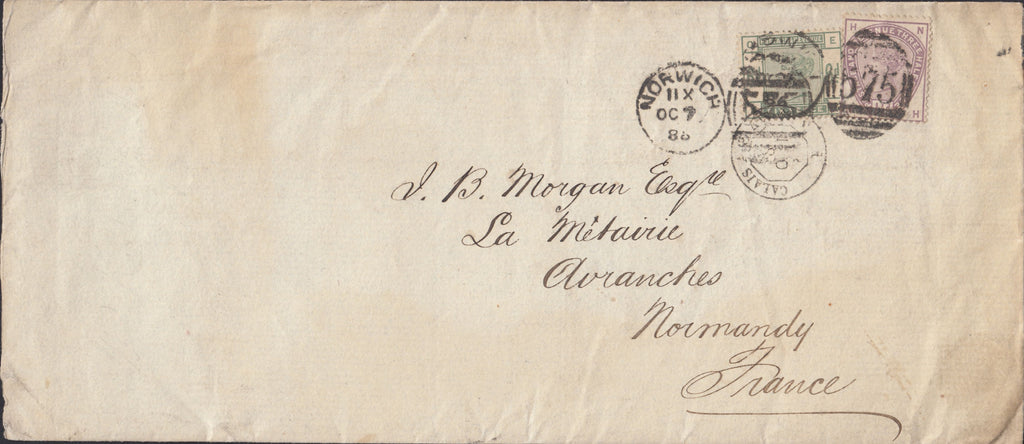 NORWICH
11X
OC 7
86
575
H N
H
E
CALAIS
J. B. Morgan Esqre
La Métairie
Avranches
Normandy
France